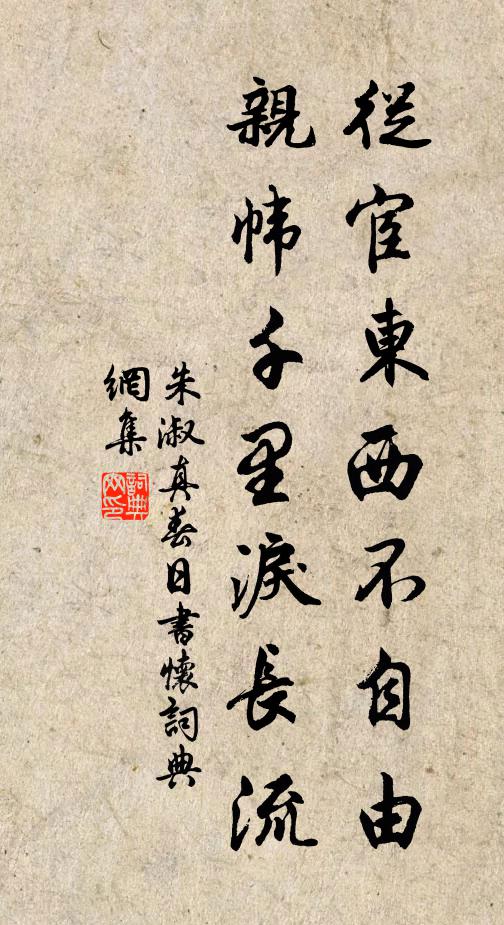 從宦東西不自由
親幃千里淚長流
朱淑真春日書懷詞典
網集
詞典
网印